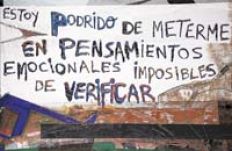 ESTOY PODRIDO DE METERME
EN PENSAMIENTOS
EMOCIONALES IMPOSIBLES
DE VERIFICAR